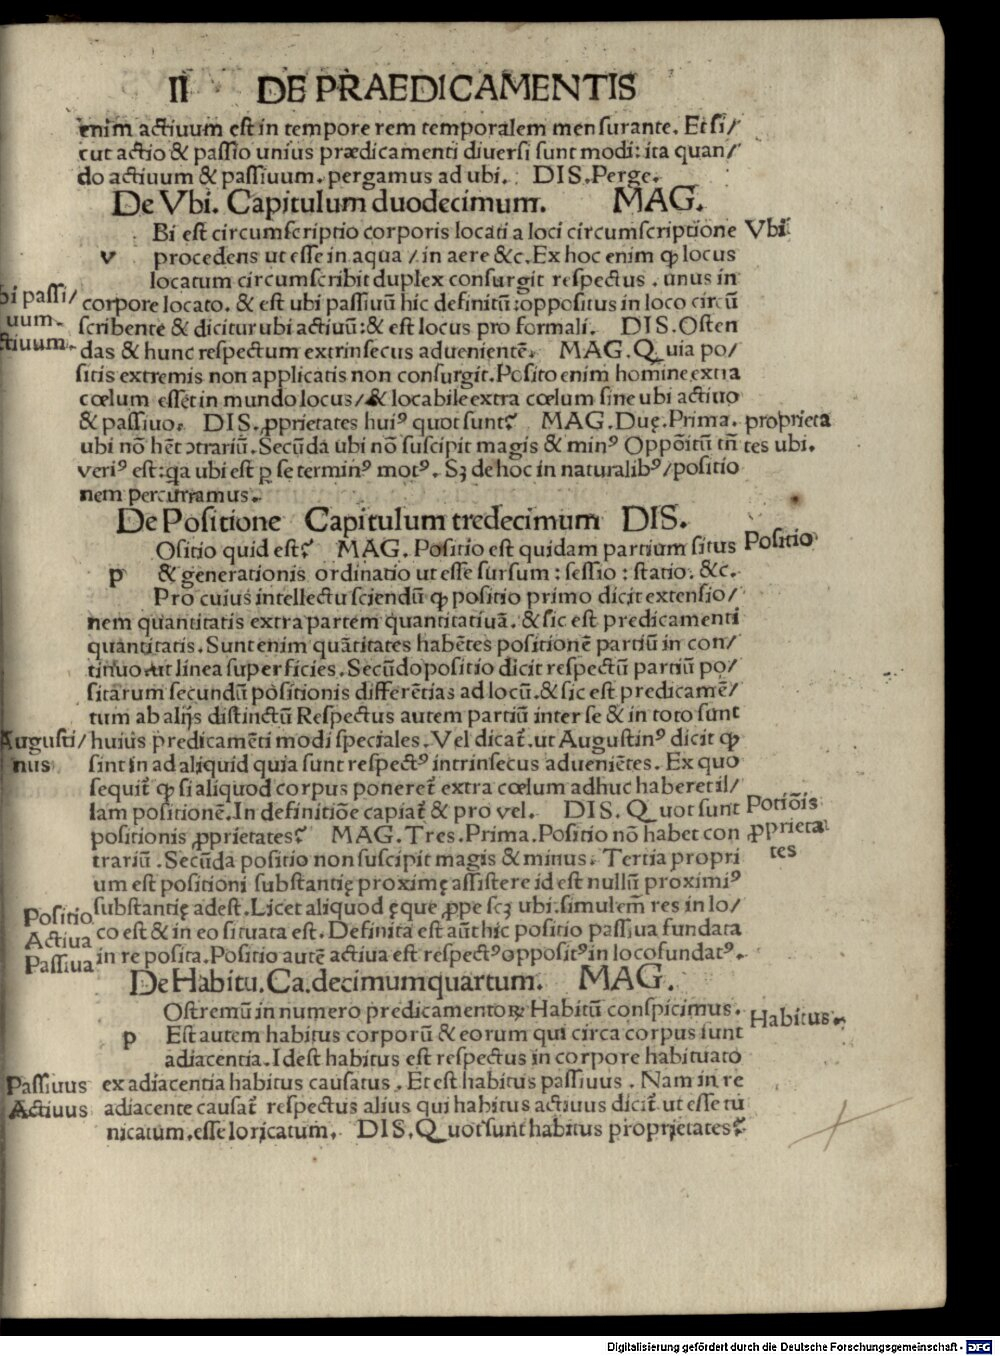 II DE PRAEDICAMENTIS
enim actiuum est in tempore rem temporalem mensurante. Et si/
cut actio & passio unius prædicamenti diuersi sunt modi: ita quan/
do actiuum & passiuum. pergamus ad ubi. DIS. Perge.
De Vbi. Capitulum duodecimum. MAG.
Bi est circumscriptio corporis locati a loci circumscriptione Vbi
v procedens ut esse in aqua / in aere &c. Ex hoc enim ꝙ locus
locatum circumscribit duplex consurgit respectus. unus in
bi passi/ corpore locato. & est ubi passiuū hic definitū: oppositus in loco circū
uum. scribente & dicitur ubi actiuū: & est locus pro formali. DIS. Osten
ctiuum. das & hunc respectum extrinsecus aduenientē. MAG. Quia po/
sitis extremis non applicatis non consurgit. Posito enim homine extra
cœlum esset in mundo locus / & locabile extra cœlum sine ubi actiuo
& passiuo. DIS. ꝓprietates huiꝰ quot sunt? MAG. Duę. Prima. proprieta
ubi nō hēt ↄtrariū. Secūda ubi nō suscipit magis & minꝰ Oppōitū tñ tes ubi.
veriꝰ est: qa ubi est ꝑ se terminꝰ motꝰ. Sꝫ de hoc in naturalibꝰ / positio
nem percurramus.
De Positione Capitulum tredecimum DIS.
Ositio quid est? MAG. Positio est quidam partium situs Positio
p & generationis ordinatio ut esse sursum: sessio: statio. &c.
Pro cuius intellectu sciendū ꝙ positio primo dicit extensio/
nem quantitatis extra partem quantitatiuā. & sic est predicamenti
quantitatis. Sunt enim quātitates habētes positionē partiū in con/
tinuo ut linea superficies. Secūdo positio dicit respectū partiū po/
sitarum secundū positionis differētias ad locū. & sic est predicamē/
tum ab alijs distinctū Respectus autem partiū inter se & in toto sunt
Augusti/ huius predicamēti modi speciales. Vel dicat᷑. ut Augustinꝰ dicit ꝙ
nus sint in ad aliquid quia sunt respectꝰ intrinsecus adueniētes. Ex quo
sequit᷑ ꝙ si aliquod corpus poneret᷑ extra cœlum adhuc haberet il/
lam positionē. In definitiōe capiat᷑ & pro vel. DIS. Quot sunt Potiōis
positionis ꝓprietates? MAG. Tres. Prima. Positio nō habet con ꝓprieta
trariū. Secūda positio non suscipit magis & minus. Tertia propri tes
um est positioni substantię proximę assistere id est nullū proximiꝰ
Positio substantię adest. Licet aliquod ęque ꝓpe scꝫ ubi. simul em̄ res in lo/
Actiua co est & in eo situata est. Definita est aūt hic positio passiua fundata
Passiua in re posita. Positio autē actiua est respectꝰ oppositꝰ in loco fundatꝰ.
De Habitu. Ca. decimumquartum. MAG.
Ostremū in numero predicamentoꝝ Habitū conspicimus. Habitus.
p Est autem habitus corporū & eorum qui circa corpus sunt
adiacentia. Id est habitus est respectus in corpore habituato
Passiuus ex adiacentia habitus causatus. Et est habitus passiuus. Nam in re
Actiuus adiacente causat᷑ respectus alius qui habitus actiuus dicit᷑ ut esse tu
nicatum. esse loricatum. DIS. Quot sunt habitus proprietates?
Digitalisierung gefördert durch die Deutsche Forschungsgemeinschaft - DFG